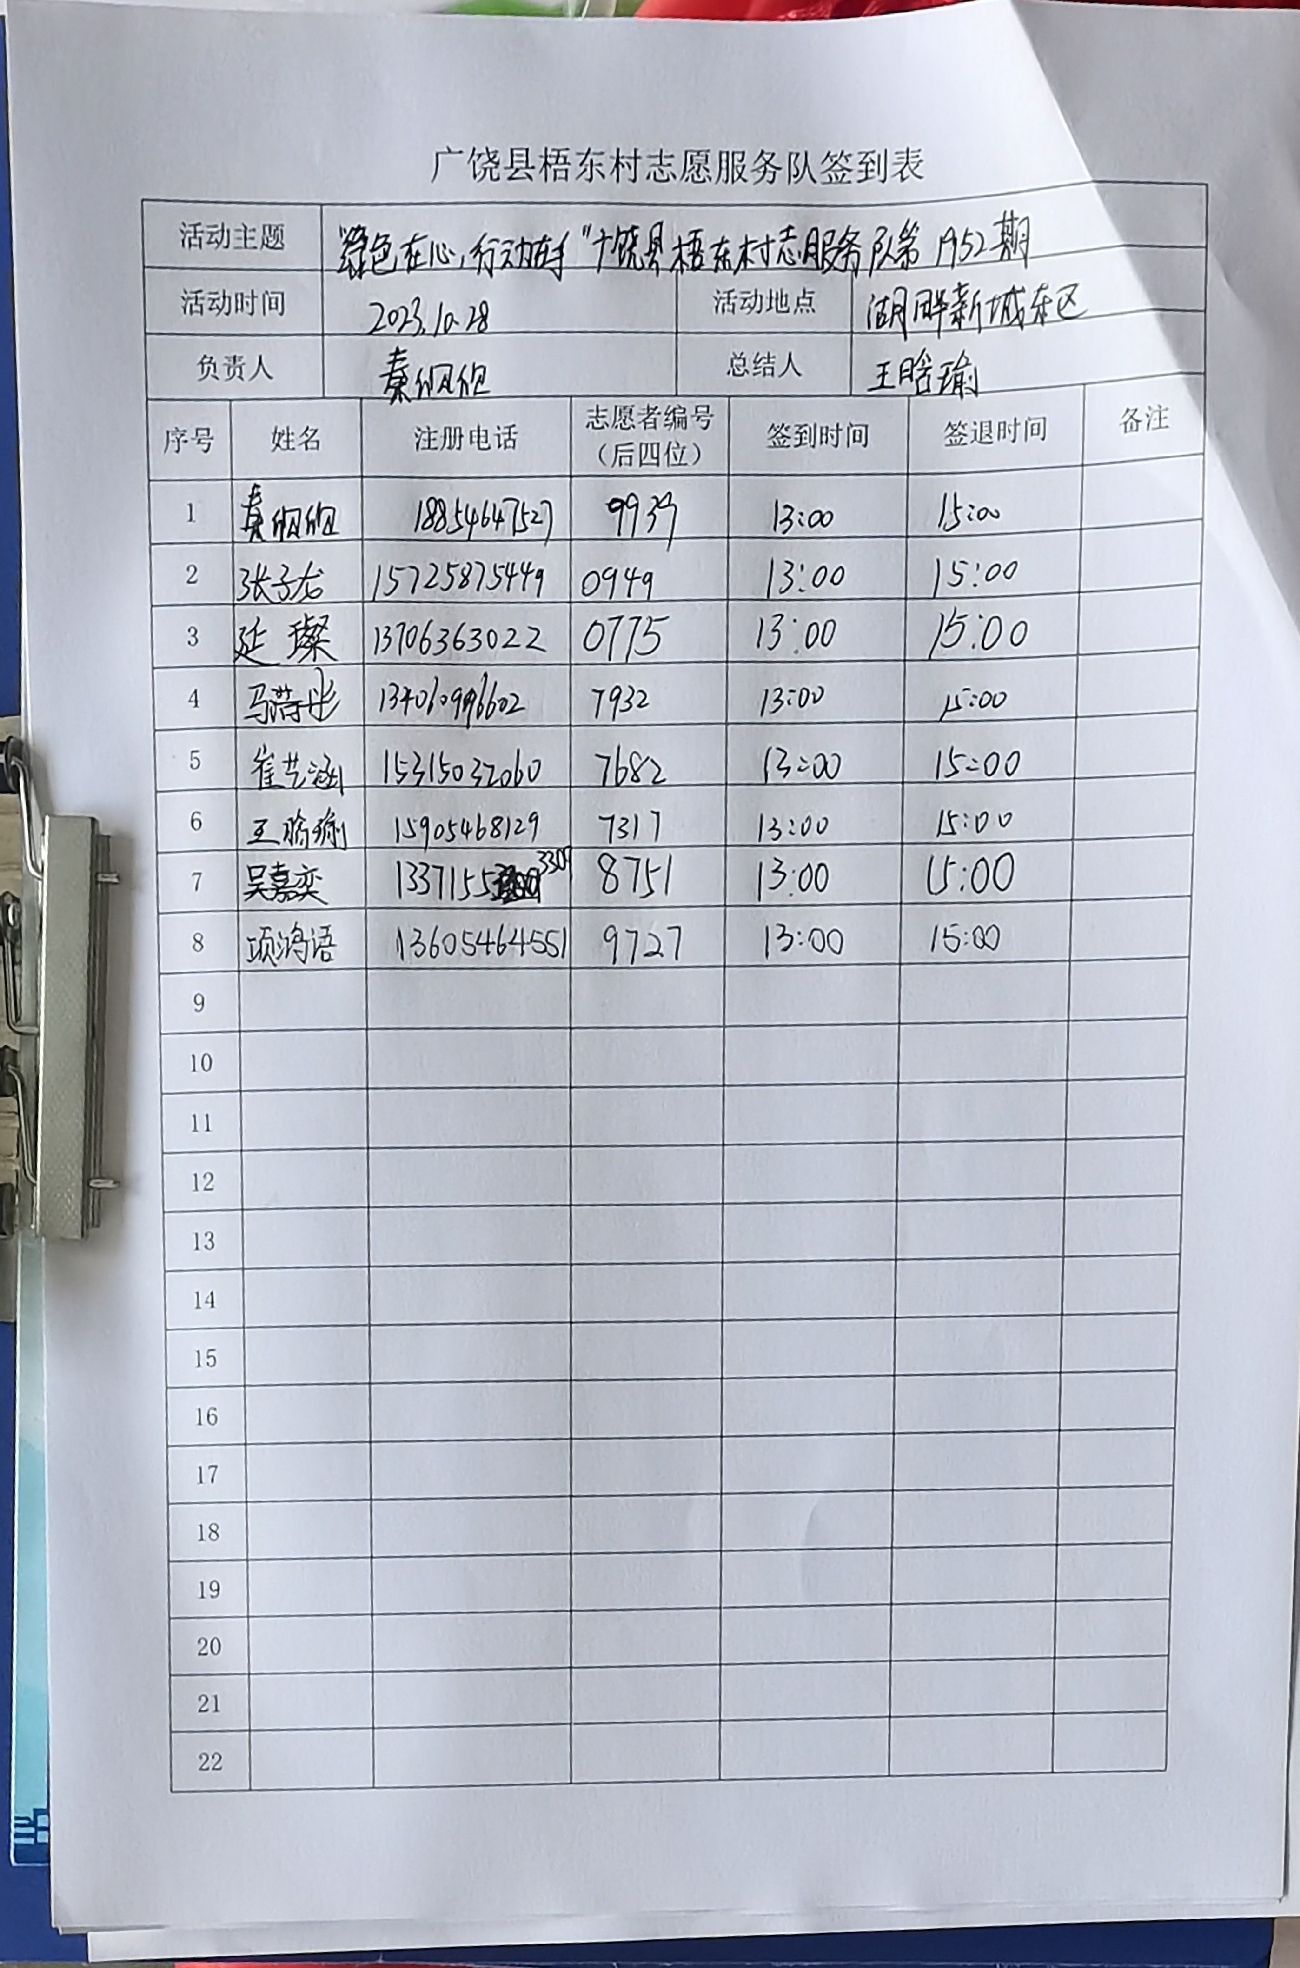 广饶县梧东村志愿服务队签到表
活动主题 "绿色在心,行动在手"广饶县梧东村志服务队第1952期
活动时间 2023.10.28 活动地点 湖畔新城东区
负责人 秦 总结人 王晗瑜
序号 姓名 注册电话 志愿者编号（后四位） 签到时间 签退时间 备注
1 秦 18854647527 9937 13:00 15:00
2 张子右 15725875449 0949 13:00 15:00
3 延璨 13706363022 0775 13:00 15:00
4 马诗彤 7932 13:00 15:00
5 崔艺涵 15315032060 7682 13:00 15:00
6 王晗瑜 15905468129 7317 13:00 15:00
7 吴嘉奕 1337155 3309 8751 13:00 15:00
8 项鸿语 13605464551 9727 13:00 15:00
9
10
11
12
13
14
15
16
17
18
19
20
21
22